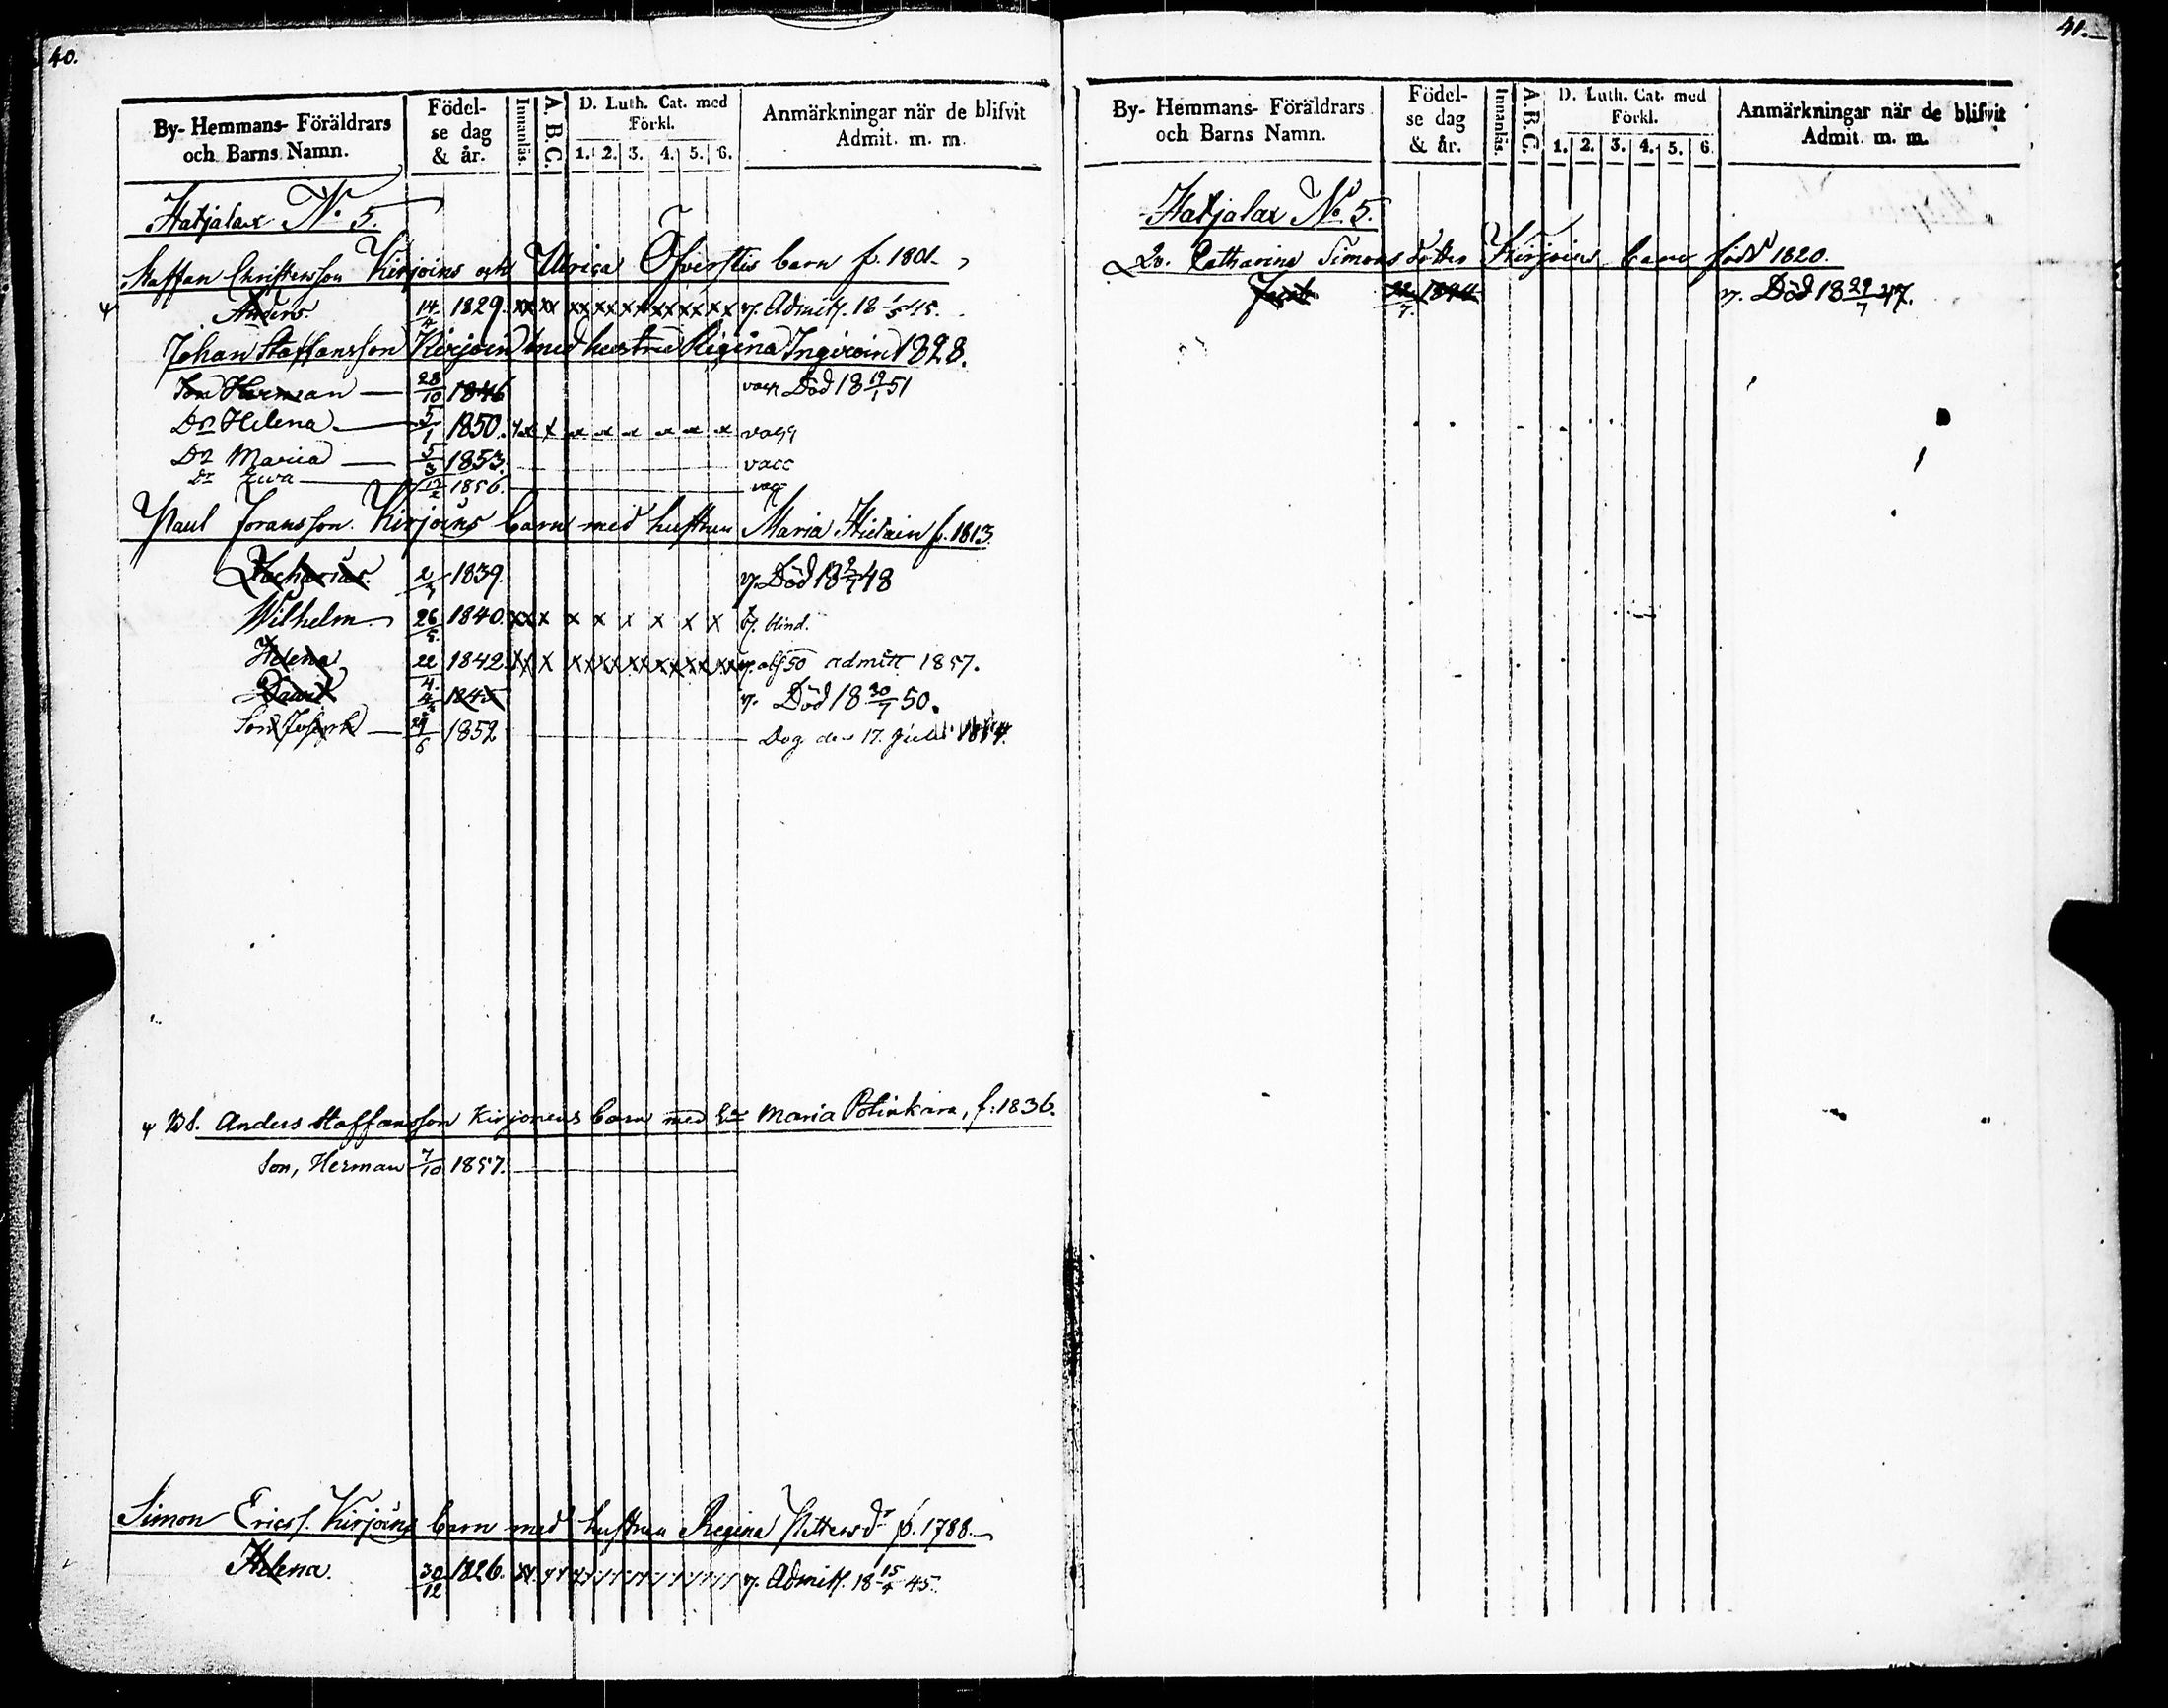 40.
By- Hemmans- Föräldrars och Barns Namn.
Födel- se dag & år.
Innanläs.
A. B. C.
D. Luth. Cat. med Förkl.
1. 2. 3. 4. 5. 6.
Anmärkningar när de blifvit Admit. m. m.
Hatjalax No. 5.
Staffan Christersson Kirjoins och Ulrica Öfverstis barn f. 1801.
Anders 14/4 1829. xx xx xx xx xx xx xx xx v. Admitt. 18 1/5 45.
Johan Staffansson Kirjoin med hustru Regina Ingiroin 1828.
Son Herman — 28/10 1846 vacc Död 18 19/1 51
Dr Helena — 5/1 1850. xx x x x x x x x vacc
Dr Maria — 5/3 1853. vacc
Dr Ewa 17/2 1856. vacc
Paul Joransson Kirjoins barn med hustrun Maria Hietain f. 1813
Zacharias. 2/3 1839. v. Död 18 2/7 48
Wilhelm 26/5. 1840. xx x x x x x x x v. blind.
Helena 22/4. 1842. xx x xx xx xx xx xx xx v. abs 50 admitt 1857.
David 4/4 1845 v. Död 18 30/7 50.
Son Joseph — 29/6 1852 Dog den 17. Juli 1854.
ψ Bd. Anders Staffansson Kirjonens barn med Hu Maria Potinkara, f: 1836.
Son, Herman 7/10 1857.
Simon Ericss. Kirjoins barn med hustrun Regina Pettersdr f. 1788.
Helena. 30/12 1826. v. Admitt. 18 15/4 45.
41.
By- Hemmans- Föräldrars och Barns Namn.
Födel- se dag & år.
Innanläs.
A. B. C.
D. Luth. Cat. med Förkl.
1. 2. 3. 4. 5. 6.
Anmärkningar när de blifvit Admit. m. m.
Hatjalax No. 5.
Qv. Catharina Simonsdotter Kirjoins barn född 1820.
Jacob 22/7. 1844 v. Död 18 29/7 47.